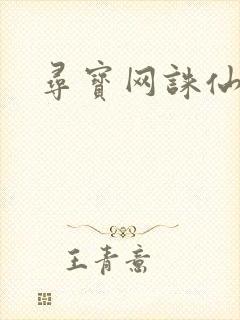 尋寳网誅仙
王青意